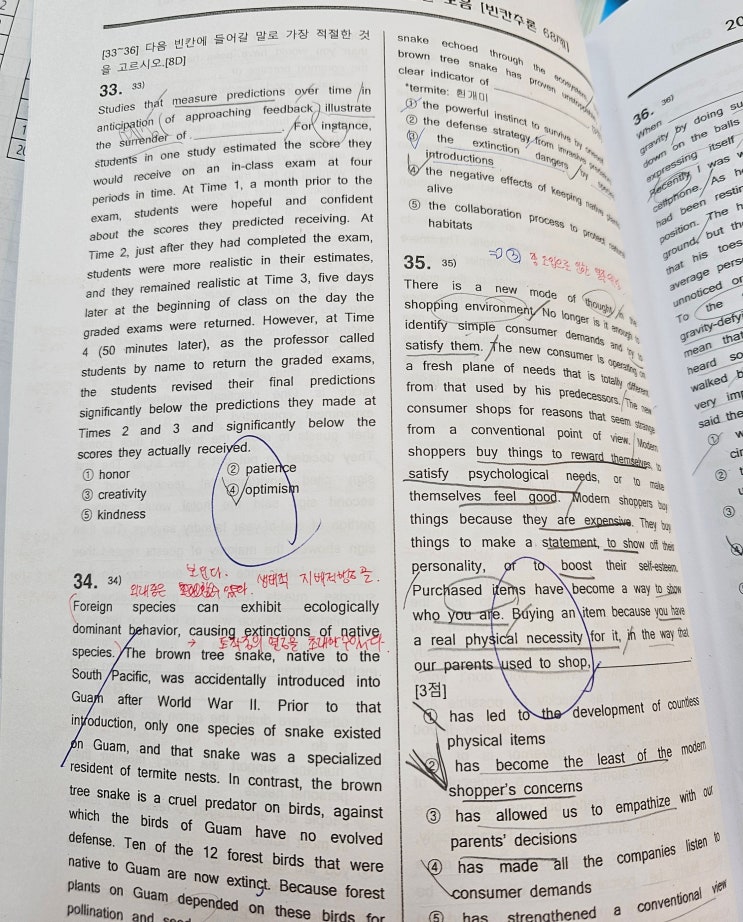 [빈칸추론 68제]
[33~36] 다음 빈칸에 들어갈 말로 가장 적절한 것
을 고르시오.[8D]
33. 33)
Studies that measure predictions over time in
anticipation of approaching feedback illustrate
the surrender of ____________. For instance,
students in one study estimated the score they
would receive on an in-class exam at four
periods in time. At Time 1, a month prior to the
exam, students were hopeful and confident
about the scores they predicted receiving. At
Time 2, just after they had completed the exam,
students were more realistic in their estimates,
and they remained realistic at Time 3, five days
later at the beginning of class on the day the
graded exams were returned. However, at Time
4 (50 minutes later), as the professor called
students by name to return the graded exams,
the students revised their final predictions
significantly below the predictions they made at
Times 2 and 3 and significantly below the
scores they actually received.
① honor ② patience
③ creativity ④ optimism
⑤ kindness
34. 34)
보인다.
외래종은 생태적 지배적행동을
Foreign species can exhibit ecologically
dominant behavior, causing extinctions of native
→ 토착종의 멸종을 초래
species. The brown tree snake, native to the
South Pacific, was accidentally introduced into
Guam after World War II. Prior to that
introduction, only one species of snake existed
on Guam, and that snake was a specialized
resident of termite nests. In contrast, the brown
tree snake is a cruel predator on birds, against
which the birds of Guam have no evolved
defense. Ten of the 12 forest birds that were
native to Guam are now extinct. Because forest
plants on Guam depended on these birds for
pollination and
snake echoed through the ecosystem
brown tree snake has proven
clear indicator of ____________
*termite: 흰개미
① the powerful instinct to survive by
② the defense strategy from invasive
③ the extinction dangers by species
introductions
④ the negative effects of keeping native
alive
⑤ the collaboration process to protect natural
habitats
35. 35)
⇒ ③ 종
There is a new mode of thought in the
shopping environment. No longer is it enough to
identify simple consumer demands and try to
satisfy them. The new consumer is operating on
a fresh plane of needs that is totally different
from that used by his predecessors. The new
consumer shops for reasons that seem strange
from a conventional point of view. Modern
shoppers buy things to reward themselves, to
satisfy psychological needs, or to make
themselves feel good. Modern shoppers buy
things because they are expensive. They buy
things to make a statement, to show off their
personality, or to boost their self-esteem.
Purchased items have become a way to show
who you are. Buying an item because you have
a real physical necessity for it, in the way that
our parents used to shop, ____________.
[3점]
① has led to the development of countless
physical items
② has become the least of the modern
shopper's concerns
③ has allowed us to empathize with our
parents' decisions
④ has made all the companies listen to
consumer demands
⑤ has strengthened a conventional view
20
36. 36)
When
gravity by doing su
down on the balls
expressing itself
Recently I was w
cellphone. As h
had been restin
position. The h
ground, but th
that his toes
average pers
unnoticed or
To the
gravity-defyi
mean that
heard so
walked b
very imp
said the
① w
cir
② t
③
④